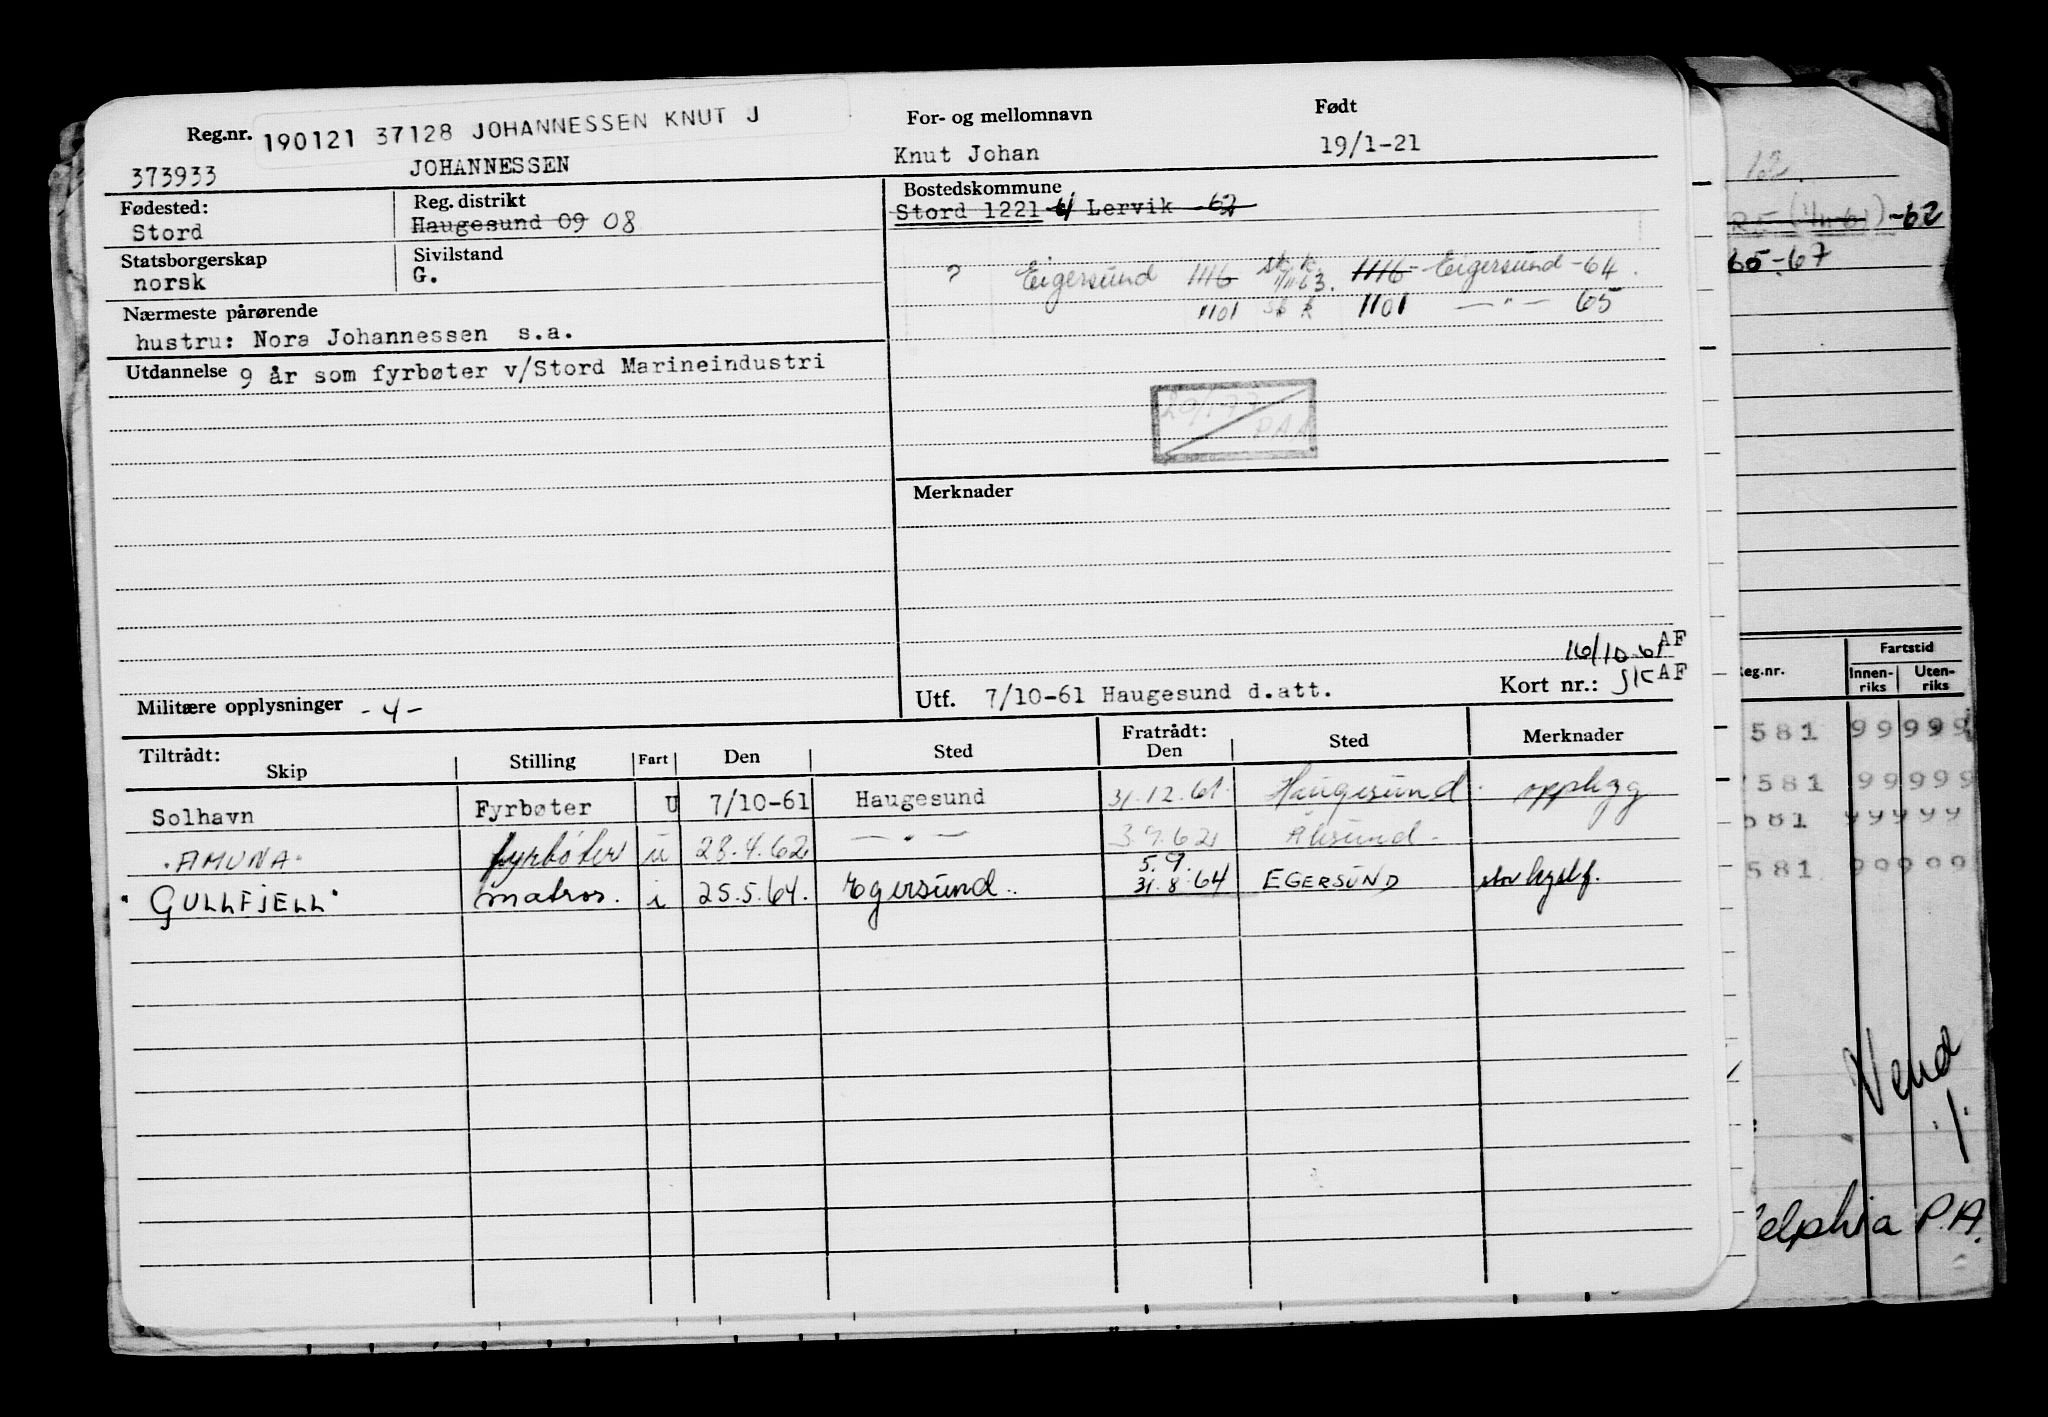 Reg.nr. 190121 37128 JOHANNESSEN KNUT J For- og mellomnavn Født
373933 JOHANNESSEN Knut Johan 19/1-21
Fødested: Reg. distrikt Bostedskommune
Stord Haugesund 09 08 Stord 1221 Lervik -62
Statsborgerskap Sivilstand
norsk G.
? Eigersund 1116 sk.k. 1/11 63. 1116 Eigersund -64.
1101 sk k 1101 — " — 65
Nærmeste pårørende
hustru: Nora Johannessen s.a.
Utdannelse 9 år som fyrbøter v/Stord Marineindustri
PAA
Merknader
16/10 61 AF
Militære opplysninger -4- Utf. 7/10-61 Haugesund d.att. Kort nr.: AF
Tiltrådt: Fratrådt:
Skip Stilling Fart Den Sted Den Sted Merknader
Solhavn Fyrbøter U 7/10-61 Haugesund 31.12.61. Haugesund. opplegg
"AMUNA" fyrbøter u 28.4.62 — " — 3.9.62 Ålesund.
5.9.
"GULLFJELL" matros. i 25.5.64. Egersund.. 31.8.64 EGERSUND
12.
-62
65-67
Fartstid
Reg.nr. Innen-riks Uten-riks
581 99 999
581 99 999
581 99 999
581 99 999
Vend
elphia P.A.